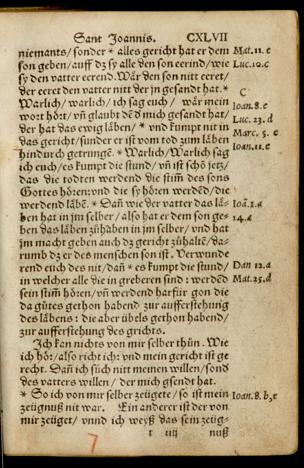 Sant Joannis. CXLVII
niemants/sonder * alles gericht hat er dem Mat.11.c
son geben/auff dz sy alle den son eerind/wie Luc.10.c
sy den vatter eerend. Wär den son nitt eeret/
der eeret den vatter nitt der jn gesandt hat. *
Warlich/warlich/ich sag euch/ wär mein C
wort hört/vñ glaubt dẽ d̃ mich gesandt hat/ Ioan.8.e
der hat das ewig läben/ * vnd kumpt nit in Luc.23.d
das gericht/sunder er ist vom tod zum läben Marc.5.c
hindurch getrungẽ. * Warlich/Warlich sag Ioan.11.c
ich euch/es kumpt die stund/vñ ist schõ jetz/
das die todten werdend die stim̃ des sons
Gottes hören: vnd die sy hören werdẽd/die
werdend läbẽ. * Dañ wie der vatter das lä- Ioã.1.a
ben hat in jm selber/also hat er dem son ge- 14.a
ben das läben zũhaben in jm selber/vnd hat
jm macht geben auch dz gericht zũhaltẽ/da-
rumb dz er des menschen son ist. Verwunde
rend euch des nit/dañ * es kumpt die stund/ Dan 12.a
in welcher alle die in greberen sind: werdẽd Mat.25.d
sein stim̃ hören/vñ werdend harfür gon die
da gũtes gethon habend zur aufferstehung
des läbens: die aber übels gethon habend/
zur aufferstehung des grichts.
Ich kan nichts von mir selber thũn. Wie
ich hör/also richt ich: vnd mein gericht ist ge
recht. Dañ ich sũch nitt meinen willen/sond
des vatters willen/der mich gsendt hat.
* So ich von mir selber zeügete/so ist mein Ioan.8.b,c
zeügnuß nit war. Ein anderer ist der von
mir zeüget/vnnd ich weyß das sein zeüg-
t iiij nuß
7